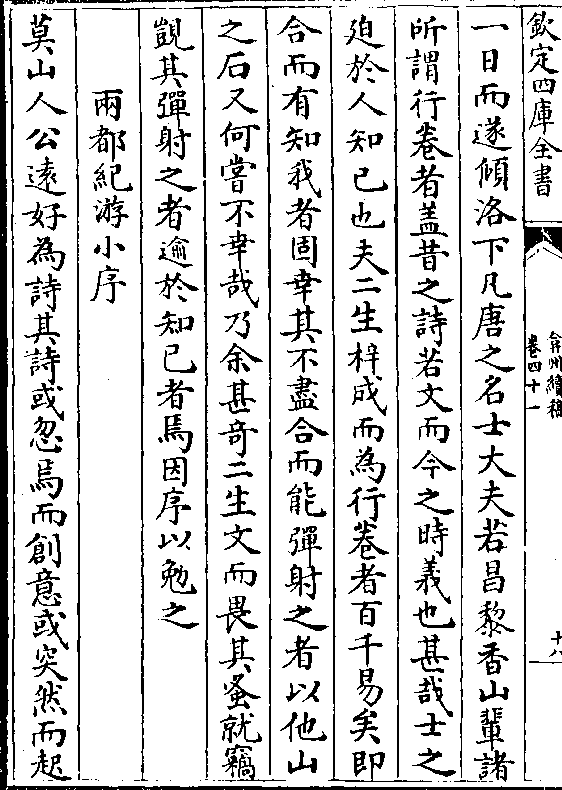 欽定四庫全書
弇州續稿
卷四十一
十八
一日而遂傾洛下凡唐之名士大夫若昌黎香山輩諸
所謂行卷者盖昔之詩若文而今之時義也甚哉士之
迫於人知已也夫二生梓成而為行卷者百千易矣即
合而有知我者固幸其不盡合而能彈射之者以他山
之石又何嘗不幸哉乃余甚竒二生文而畏其蚤就竊
覬其彈射之者逾於知已者焉因序以勉之
兩都紀游小序
莫山人公逺好為詩其詩或忽焉而創意或突然而起